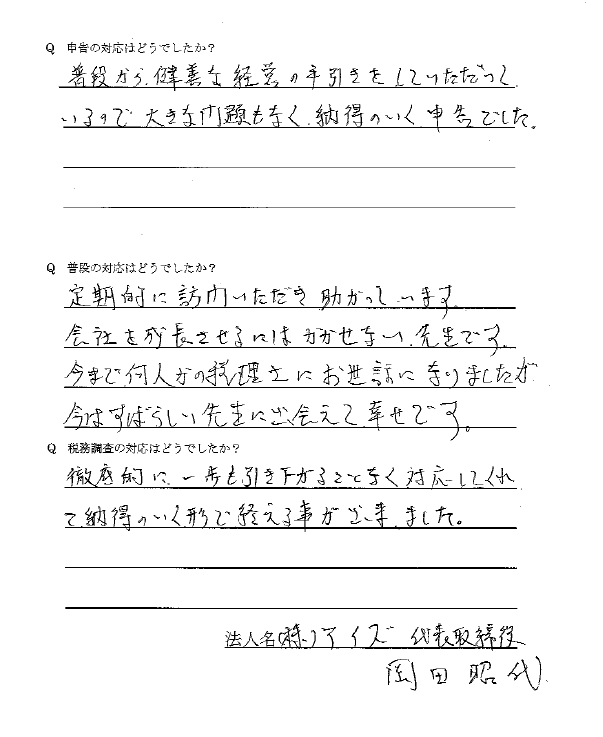 Q 申告の対応はどうでしたか?
普段から、健善な経営の手引きをしていただいて
いるので大きな問題もなく、納得のいく申告でした。
Q 普段の対応はどうでしたか?
定期的に訪問いただき助かっています。
会社を成長させるにはかかせない先生です。
今まで何人かの税理士にお世話になりましたが
今はすばらしい先生に出会えて幸せです。
Q 税務調査の対応はどうでしたか?
徹底的に、一歩も引き下がることなく対応してくれ
て納得のいく形で終える事が出来ました。
法人名 (株)アイズ 代表取締役
岡田昭代